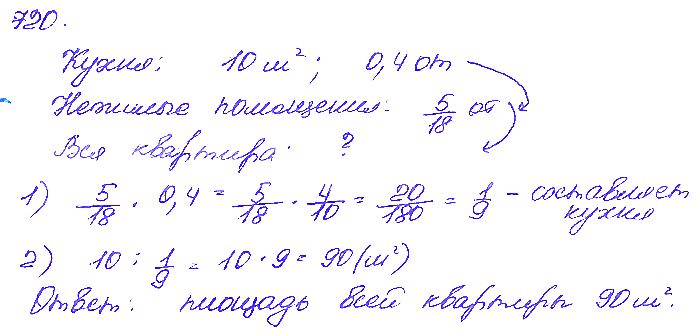 720.
Кухня: 10 м²; 0,4 от
Нежилые помещения: 5/18 от
Вся квартира: ?
1) 5/18 · 0,4 = 5/18 · 4/10 = 20/180 = 1/9 - составляет кухня
2) 10 : 1/9 = 10 · 9 = 90 (м²)
Ответ: площадь всей квартиры 90 м².